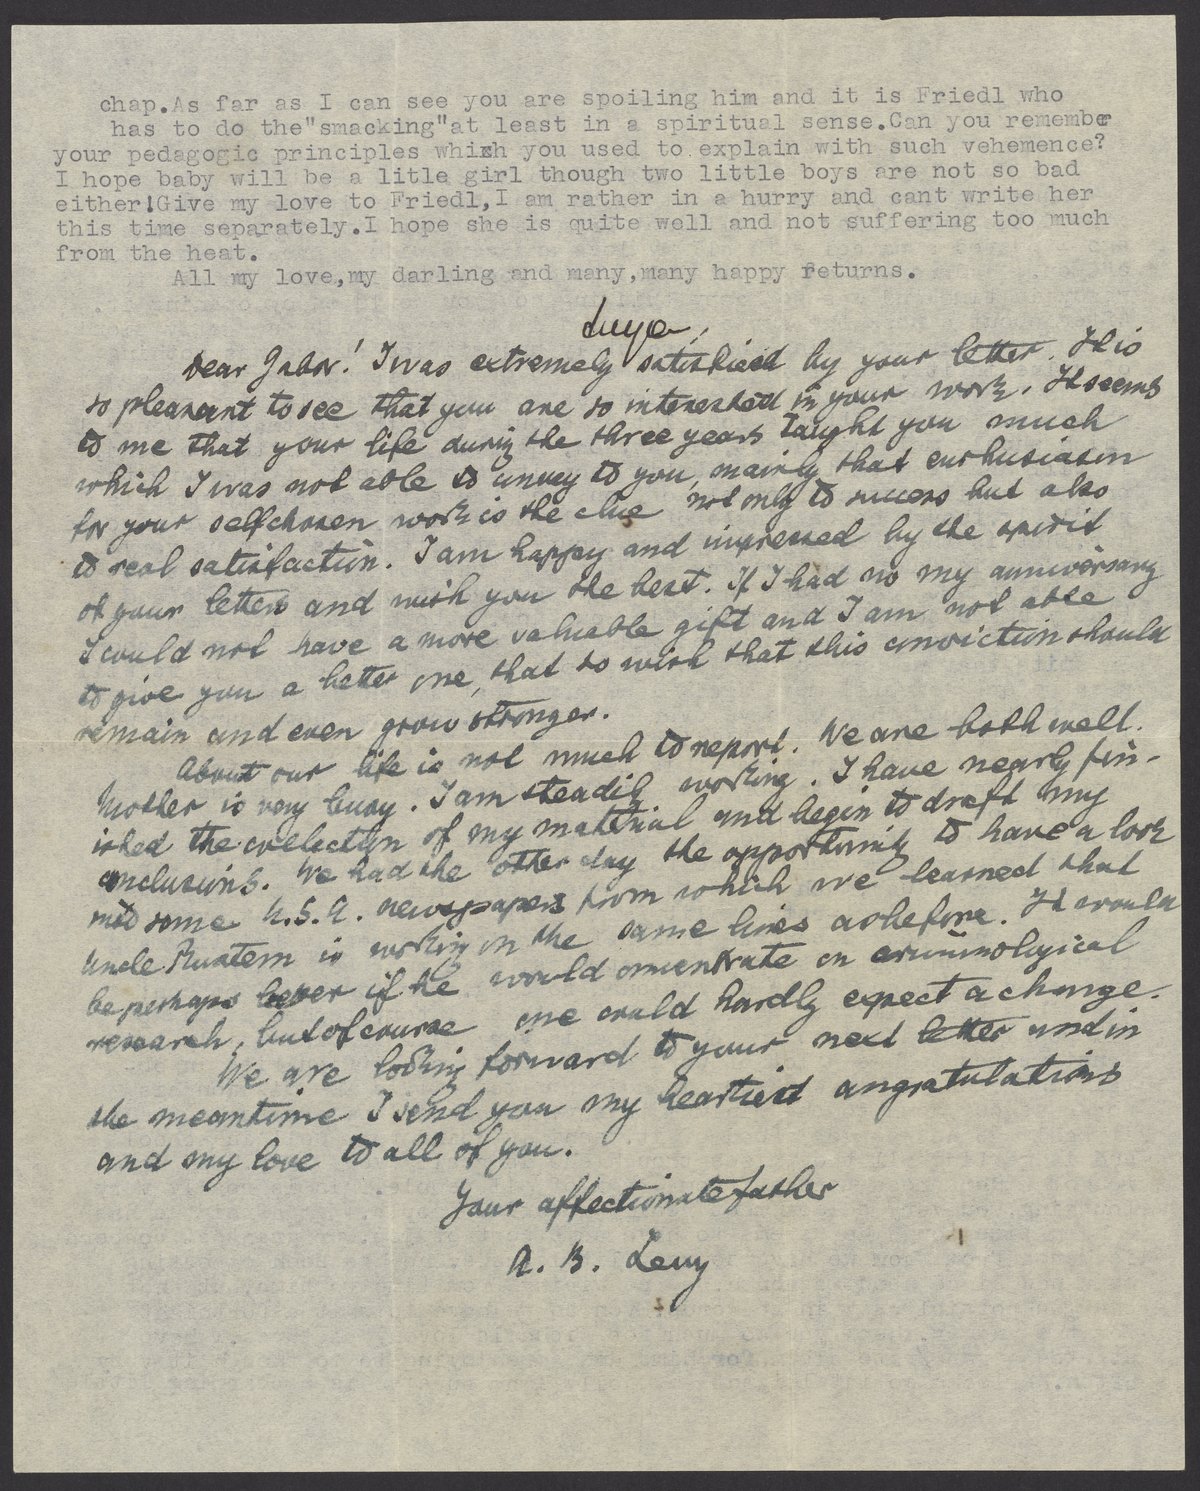 chap.As far as I can see you are spoiling him and it is Friedl who
has to do the"smacking"at least in a spiritual sense.Can you remember
your pedagogic principles which you used to explain with such vehemence?
I hope baby will be a litle girl though two little boys are not so bad
either!Give my love to Friedl,I am rather in a hurry and cant write her
this time separately.I hope she is quite well and not suffering too much
from the heat.
All my love,my darling and many,many happy returns.
Dear Gabor! I was extremely satisfied by your letter. It is
so pleasant to see that you are so interested in your work. It seems
to me that your life during the three years taught you much
which I was not able to convey to you, mainly that enthusiasm
for your selfchosen work is the clue not only to success but also
to real satisfaction. I am happy and impressed by the spirit
of your letters and wish you the best. If I had no my anniversary
I could not have a more valuable gift and I am not able
to give you a better one, that to wish that this conviction should
remain and even grow stronger.
About our life is not much to report. We are both well.
Mother is very busy. I am steadily working. I have nearly fin-
ished the collection of my material and begin to draft my
conclusions. We had the other day the opportunity to have a look
into some U.S.A. newspapers from which we learned that
Uncle is working on the same lines as before. It would
be perhaps better if he would concentrate on criminological
research, but of course one could hardly expect a change.
We are looking forward to your next letter and in
the meantime I send you my heartiest congratulations
and my love to all of you.
Your affectionate father
A. B. Levy